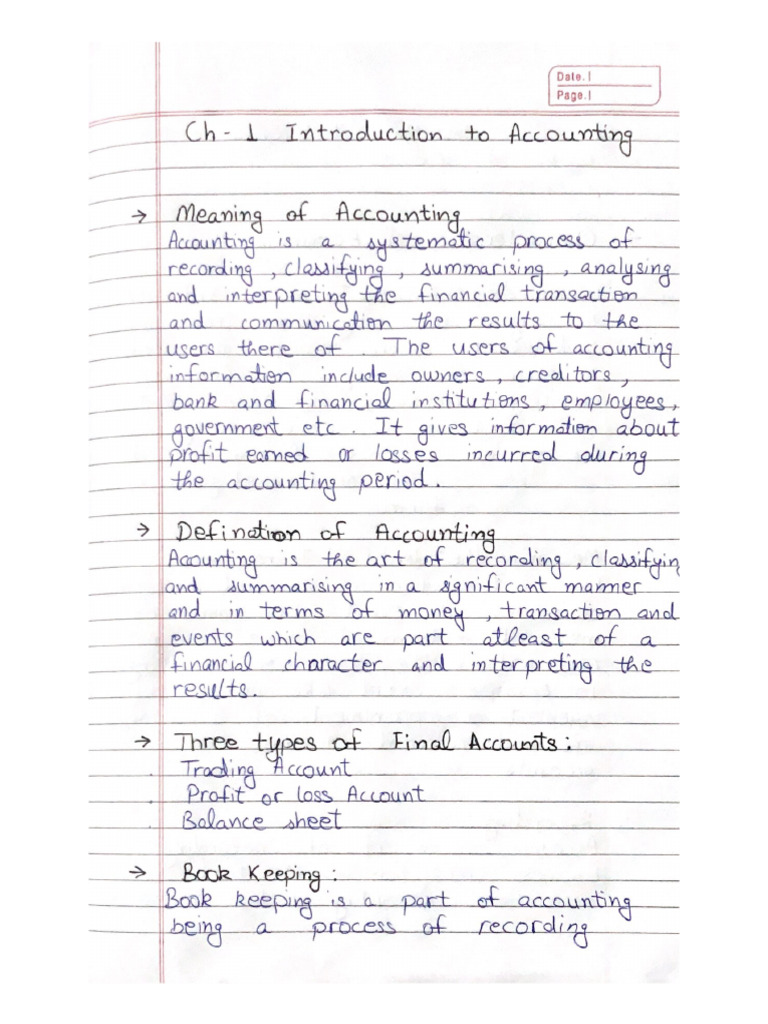 Date. |
Page. |
Ch - 1 Introduction to Accounting
→ Meaning of Accounting
Accounting is a systematic process of
recording , classifying , summarising , analysing
and interpreting the financial transaction
and communication the results to the
users there of . The users of accounting
information include owners , creditors ,
bank and financial institutions , employees ,
government etc . It gives information about
profit earned or losses incurred during
the accounting period .
→ Defination of Accounting
Accounting is the art of recording , classifyin
and summarising in a significant manner
and in terms of money , transaction and
events which are part atleast of a
financial character and interpreting the
results .
→ Three types of Final Accounts :
Trading Account
Profit or loss Account
Balance sheet
→ Book Keeping :
Book keeping is a part of accounting
being a process of recording